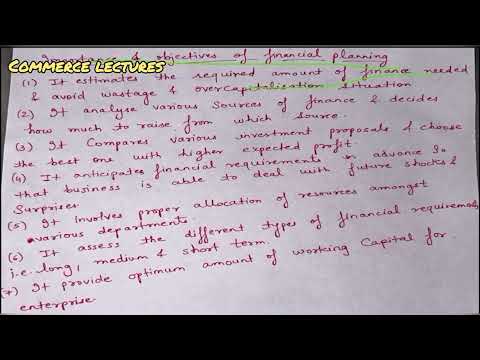 COMMERCE LECTURES
& objectives of financial planning
(1) It estimates the required amount of finance needed
& avoid wastage & overcapitalisation situation
(2) It analyse various sources of finance & decides
how much to raise from which source.
(3) It Compares various investment proposals & choose
the best one with higher expected profit.
(4) It anticipates financial requirements in advance so
that business is able to deal with future shocks &
Surprises.
(5) It involves proper allocation of resources amongst
various departments.
(6) It assess the different types of financial requirements
i.e. long, medium & short term.
(7) It provide optimum amount of working Capital for
enterprise.